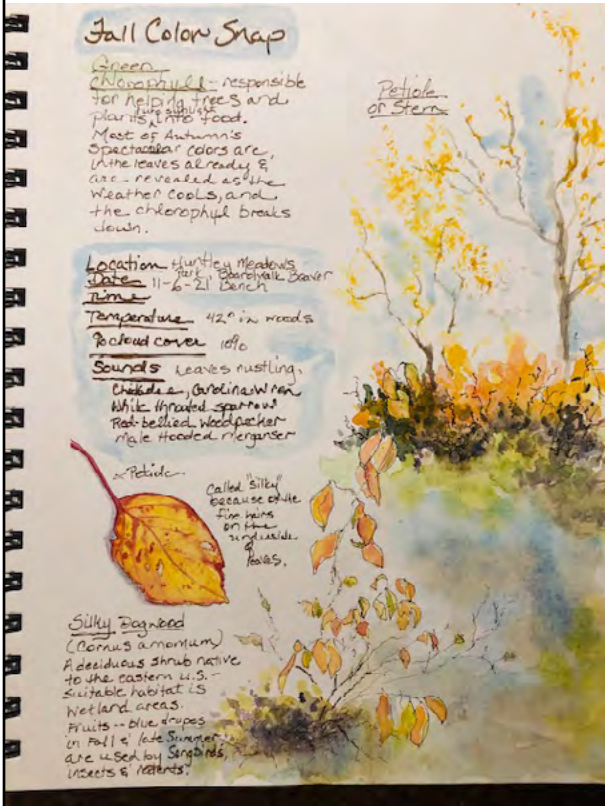 Fall Color Snap
Green
chlorophyll - responsible
for helping trees and
turn sunlight
plants into food.
Most of Autumn's
spectacular colors are
in the leaves already &
are revealed as the
weather cools, and
the chlorophyl breaks
down.
Petiole
or Stem
Location Huntley Meadows
Park, Boardwalk Beaver
Date 11-6-21 Bench
Time
Temperature 42° in woods
% cloud cover 10%
Sounds Leaves rustling,
Chickadee, Carolina Wren
White throated sparrow
Red-bellied Woodpecker
male Hooded merganser
Petiole
Called "silky"
because of the
fine hairs
on the
underside
of
leaves.
Silky Dogwood
(Cornus amomum)
A deciduous shrub native
to the eastern U.S. -
suitable habitat is
wetland areas.
Fruits -- blue drupes
in Fall & late Summer
are used by Songbirds,
insects & rodents.